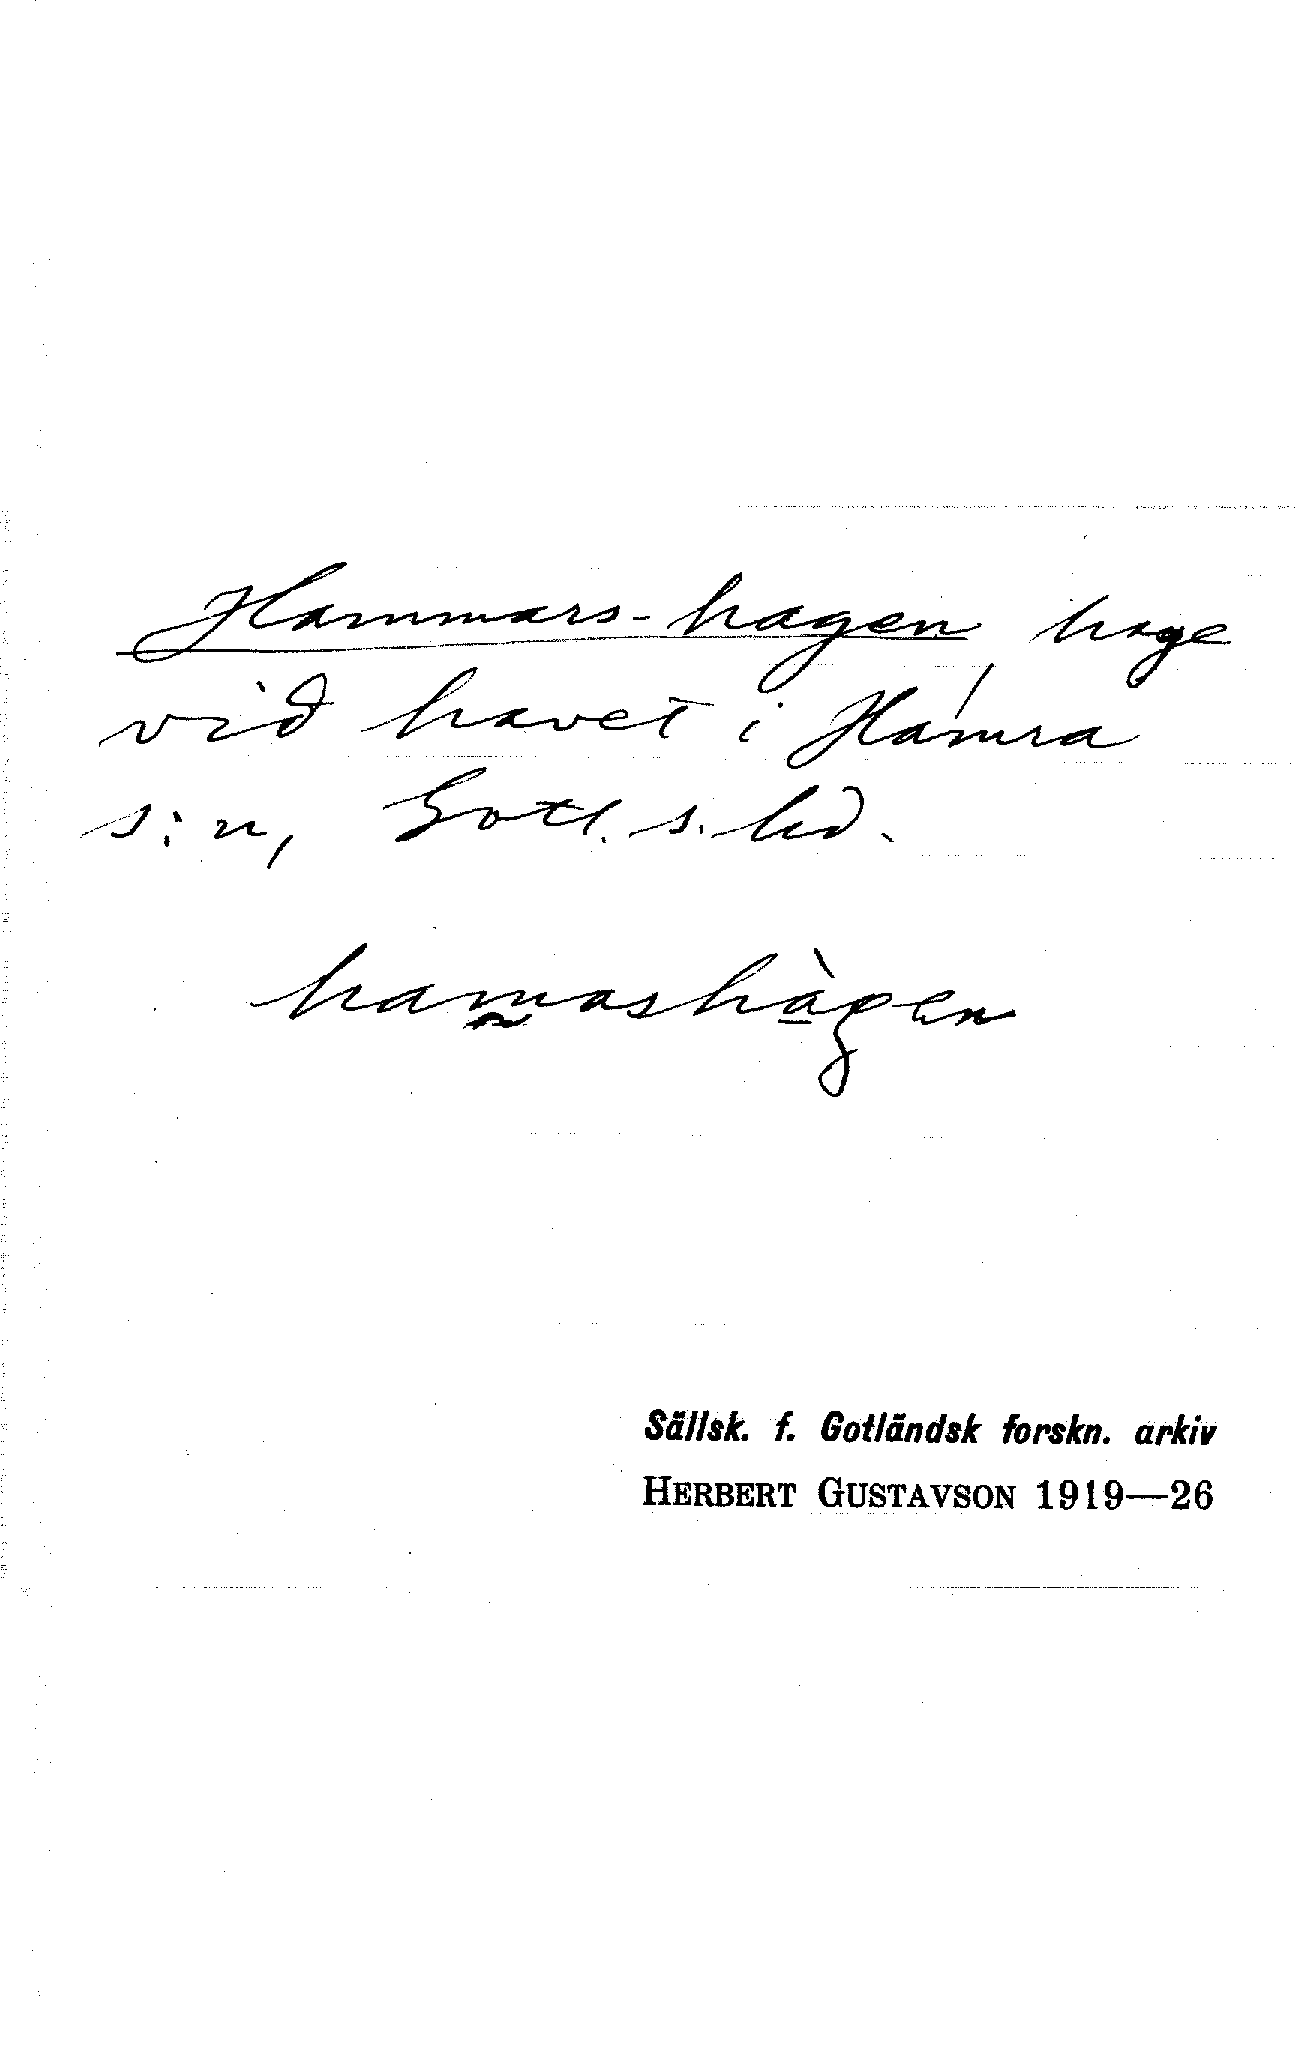 Hammars-hagen, hage
vid havet i Hamra
s:n, Gotl. s. hd.
hamashàgen
Sällsk. f. Gotländsk forskn. arkiv
HERBERT GUSTAVSON 1919—26